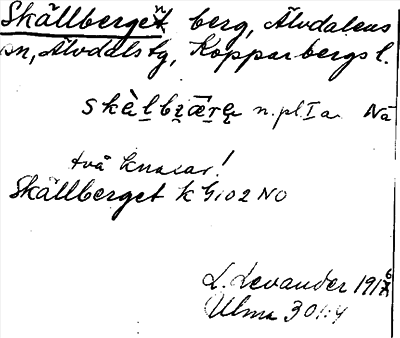 Skällberget berg, Älvdalens
sn, Älvdals tg, Kopparbergs l.
n.pl I a. Nä
två knasar!
Skällberget k G102 NO
L. Levander 1916
Ulma 301:4